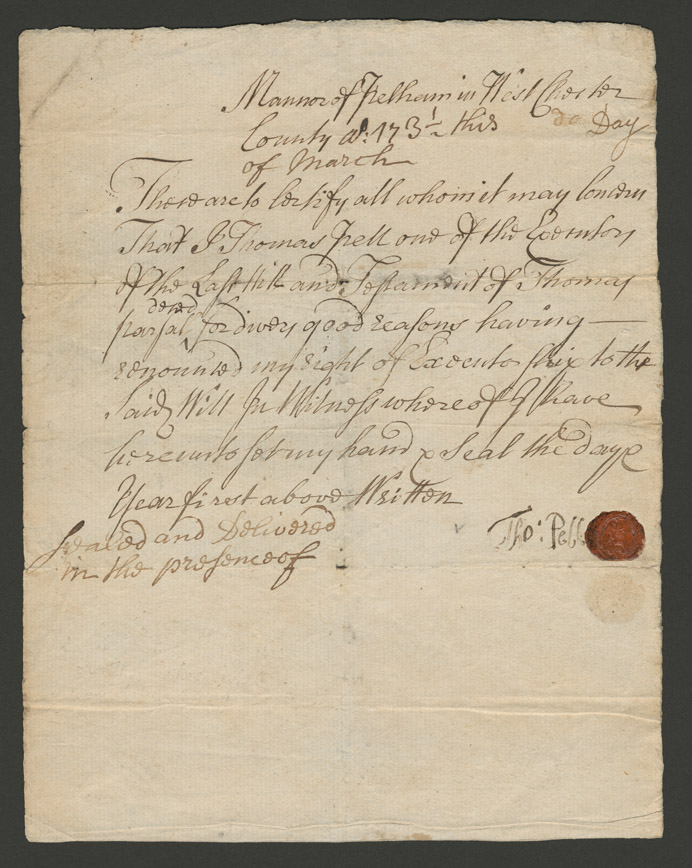 Mannor of Pelham in West Chester
County ao: 173½ this do Day
of March
These are to Certify all whom it may Concern
That I Thomas Pell one of the Executors
of the Last Will and Testament of Thomas
decesd
for divers good reasons having
renounced my right of Executorship to the
Said Will In Witness whereof I have
hereunto set my hand & Seal the day &
Year first above Written
Sealed and Delivered Tho: Pell
in the presence of